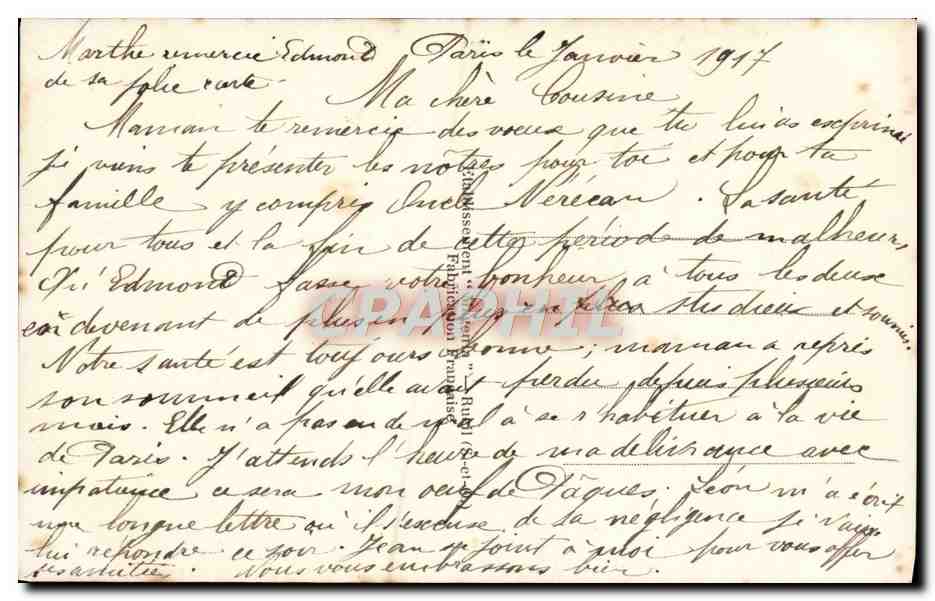 Marthe remercie Edmond
de sa jolie carte
Paris le Janvier 1917
Ma chère Cousine
Maman te remercie des voeux que tu lui as exprimé
je viens te présenter les nôtres pour toi et pour ta
famille y compris Oncle Nérécan. La santé
pour tous et la fin de cette période de malheurs,
Qu'Edmond fasse votre bonheur à tous les deux
en devenant de plus en plus en plus studieux et soumis.
Notre santé est toujours bonne; maman a repris
son sommeil qu'elle avait perdu depuis plusieurs
mois. Elle n'a pas eu de mal à se r'habituer à la vie
de Paris. J'attends l'heure de ma délivrance avec
impatience ce sera mon oeuf de Pâques. Léon m'a écrit
une longue lettre où il s'excuse de sa négligence je vais
lui répondre ce soir. Jean se joint à moi pour vous offrir
ses amitiés. Nous vous embrassons bien.
Etablissement
Fabrication Française
CPAPHIL